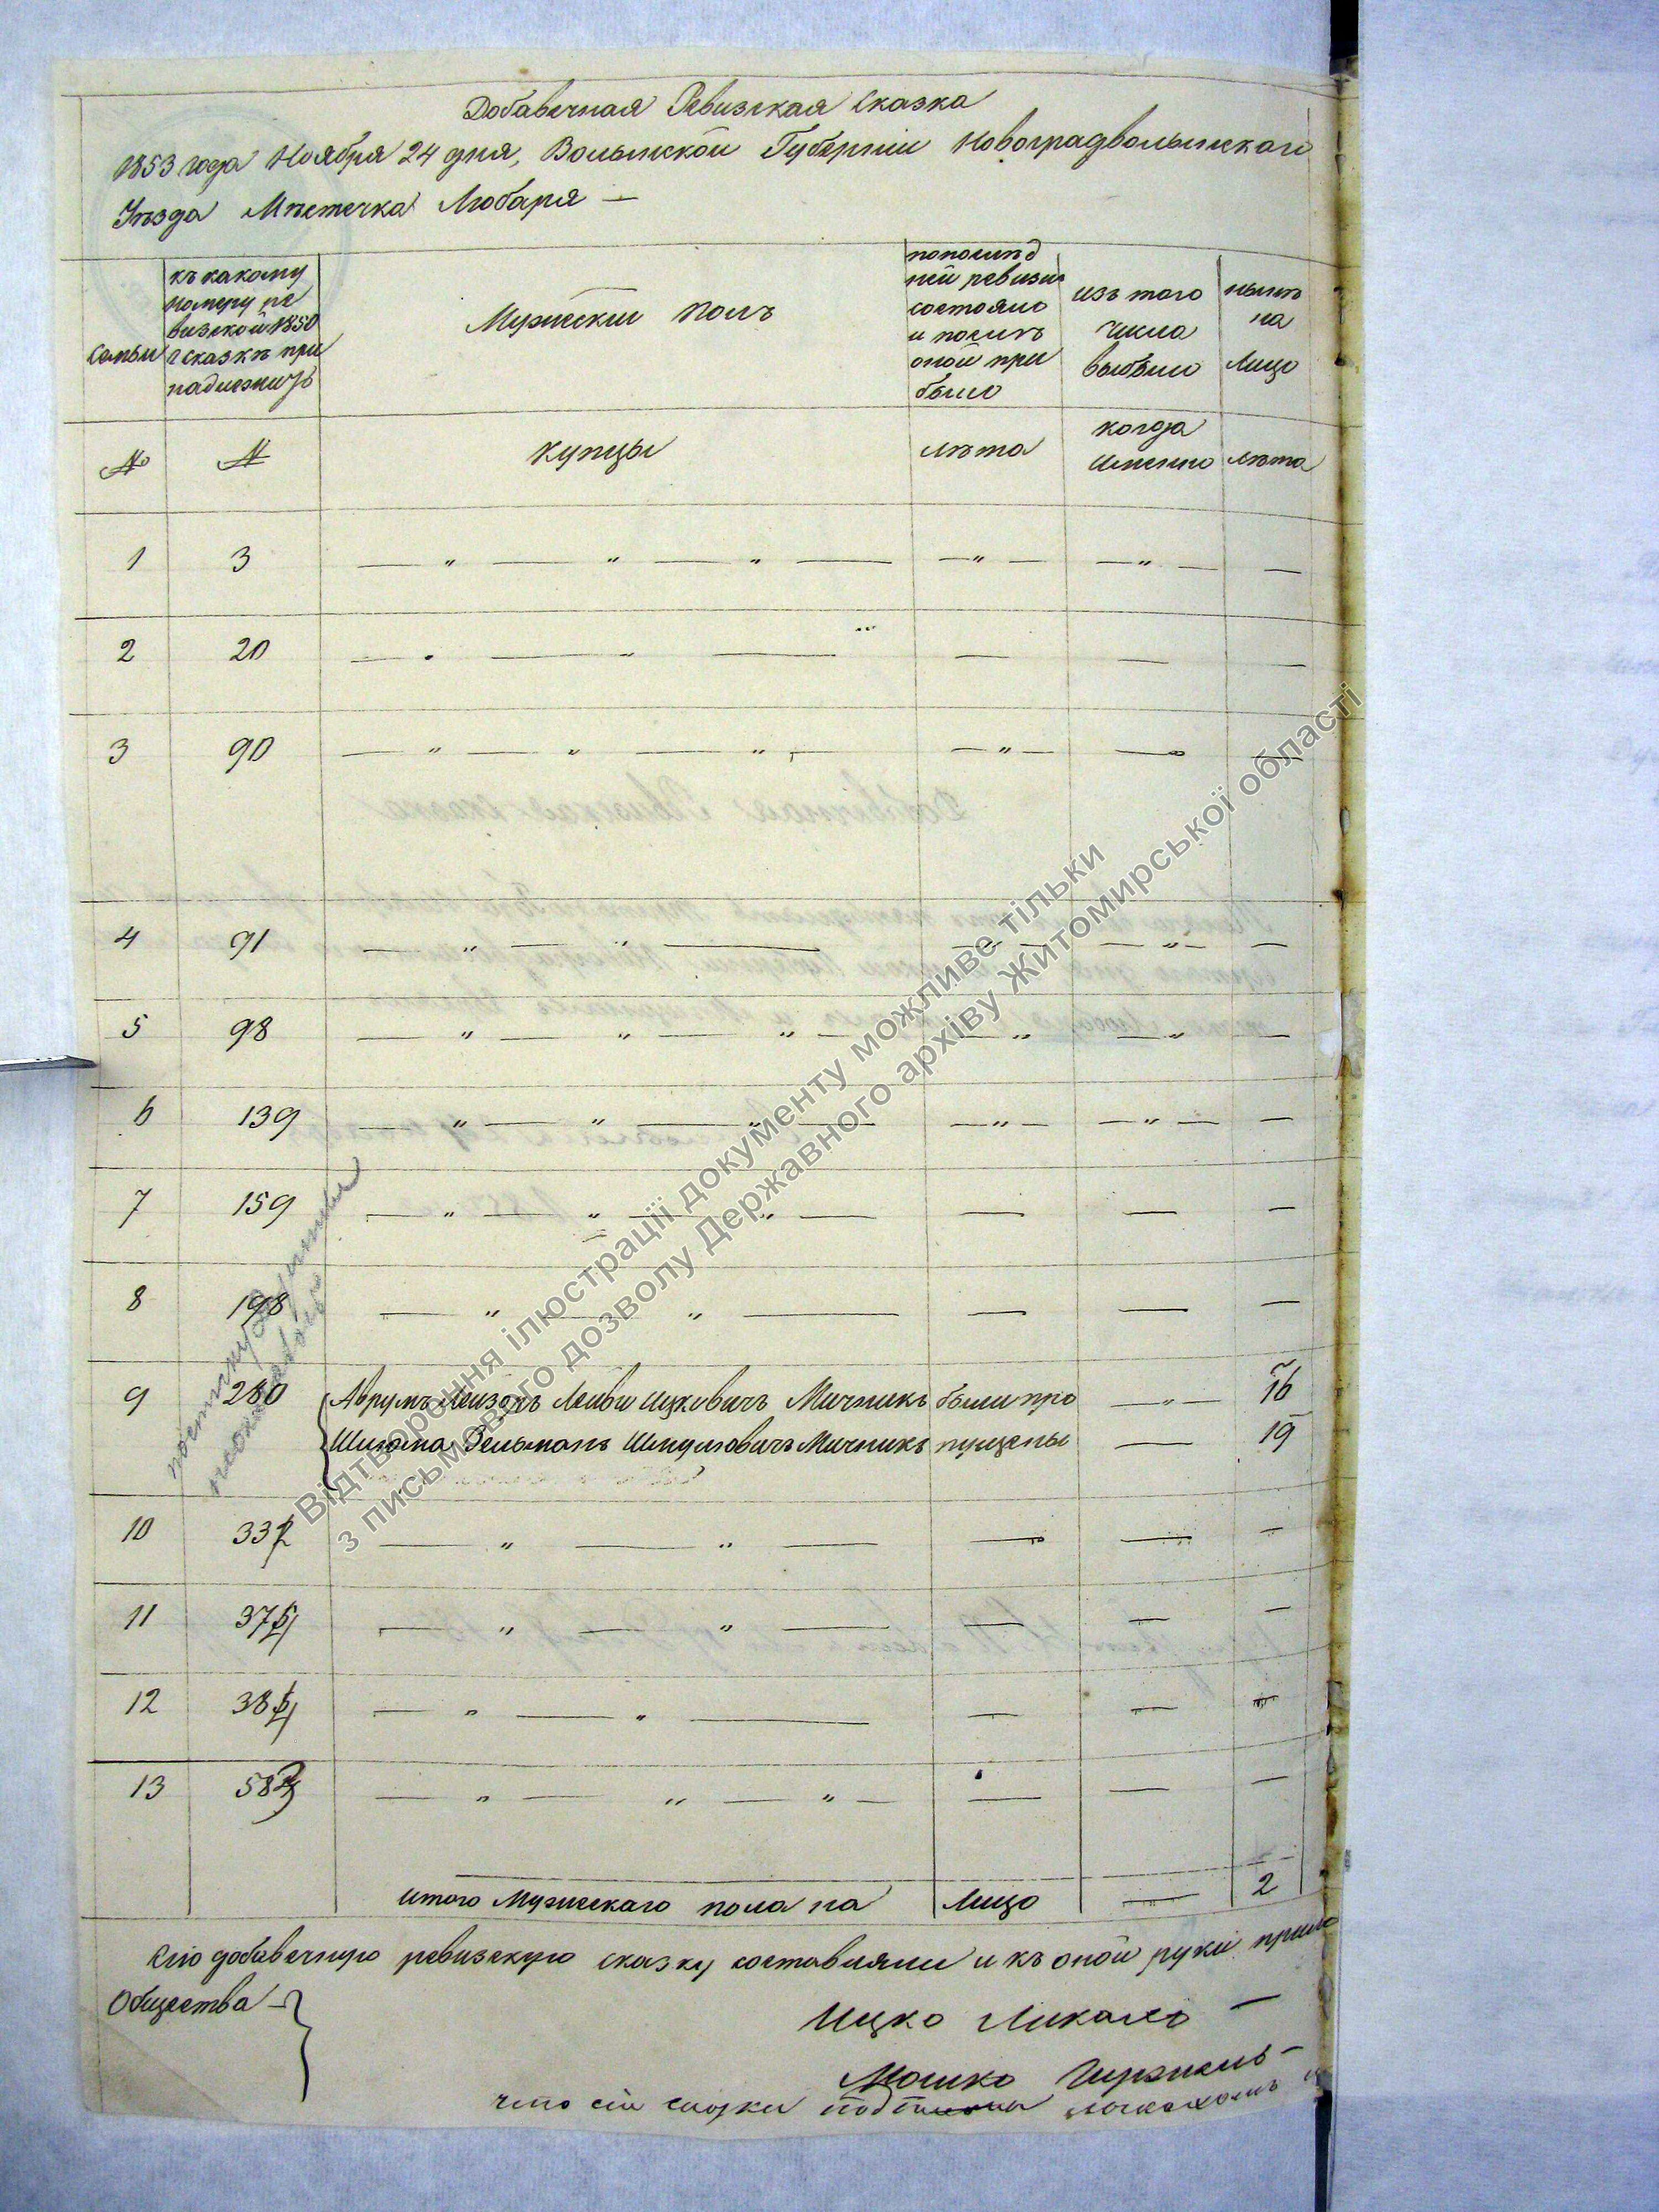 Добавочная Ревизская Сказка
1853 года Ноября 24 дня, Волынской Губернии Новоградволынскаго
Уѣзда Мѣстечка Любаря —
Семьи
къ какому
номеру ре
визской 1850
г сказкѣ при
надлежитъ
Мужескій Полъ
попослѣд
ней ревизіи
состояло
и послѣ
оной при
было
изъ того
числа
выбыло
нынѣ
на
Лицо
№
№
Купцы
лѣта
когда
именно
лѣта
1 3
2 20
3 90
4 91
5 98
6 139
7 159
8 198
9 280 Аврумъ Лейзоръ Лейви Ицковичъ Мичникъ были про 16
Шлиома Зельманъ Шмулиовичъ Мичникъ пущены 19
10 332
11
12
13
итого Мужескаго пола на Лицо 2
Сію добавочную ревизскую сказку составляли и къ оной руки прило
Общества
Ицко
Мошко
что сіи сказки
Відтворення ілюстрації документу можливе тільки
з письмового дозволу Державного архіву Житомирської області